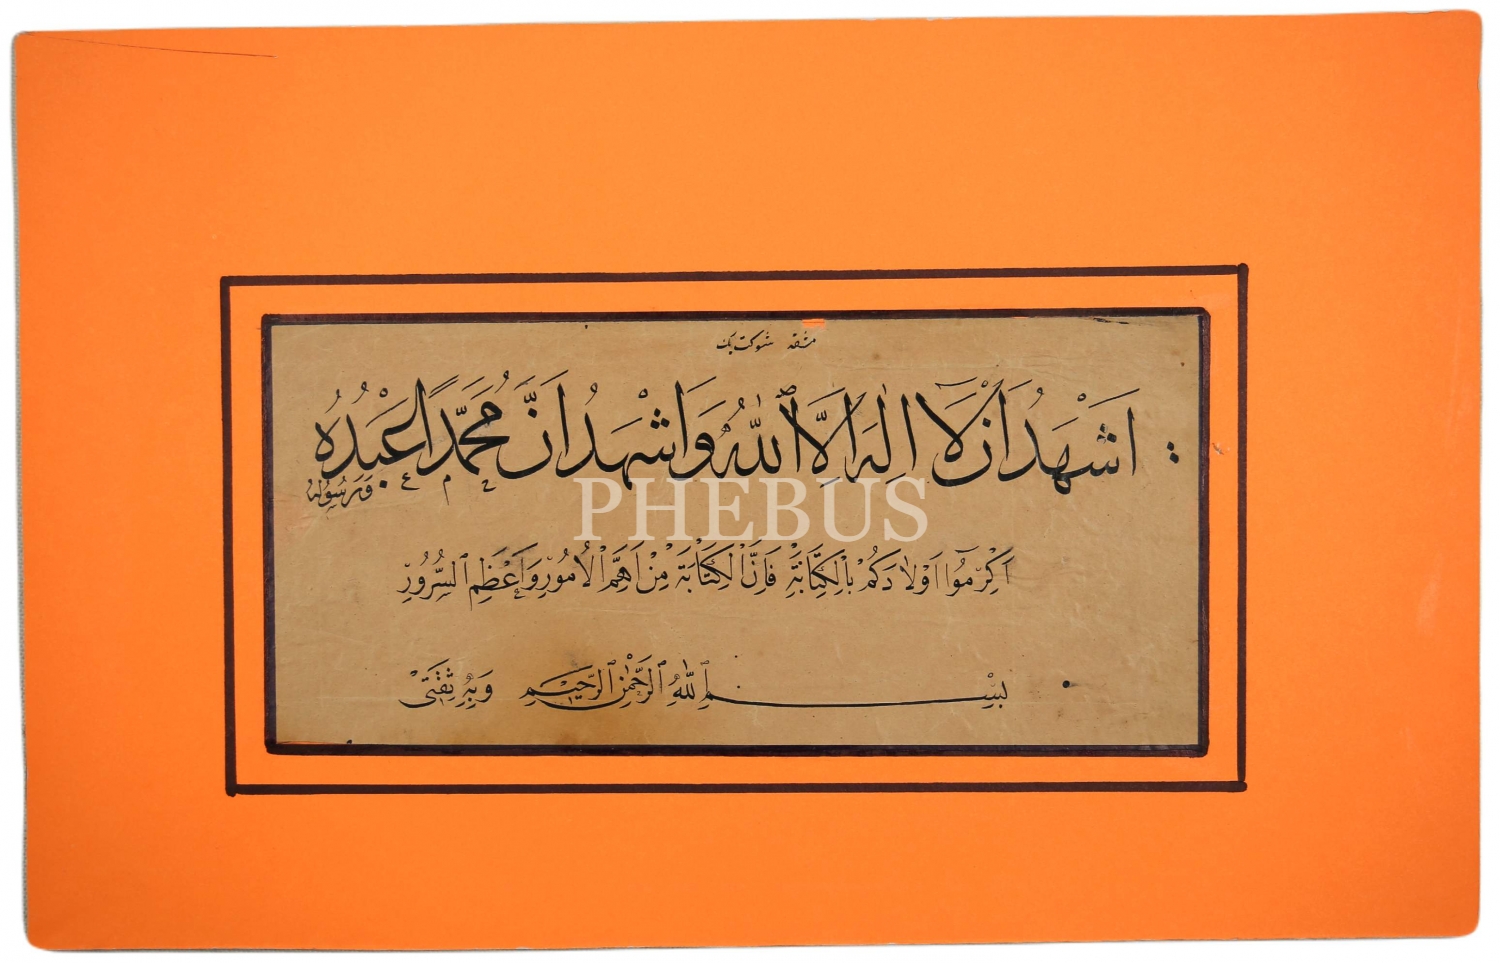 مشقه شوكت بك
اَشْهَدُ اَنْ لَا اِلٰهَ اِلَّا اللّٰهُ وَاَشْهَدُ اَنَّ مُحَمَّدًا عَبْدُهُ
وَرَسُولُهُ
PHEBUS
اَكْرِمُوا اَوْلَادَكُمْ بِالْكِتَابَةِ فَاِنَّ الْكِتَابَةَ مِنْ اَهَمِّ الْاُمُورِ وَاَعْظَمِ السُّرُورِ
بِسْمِ اللّٰهِ الرَّحْمٰنِ الرَّحِيْمِ وَبِهِ ثِقَتِىْ